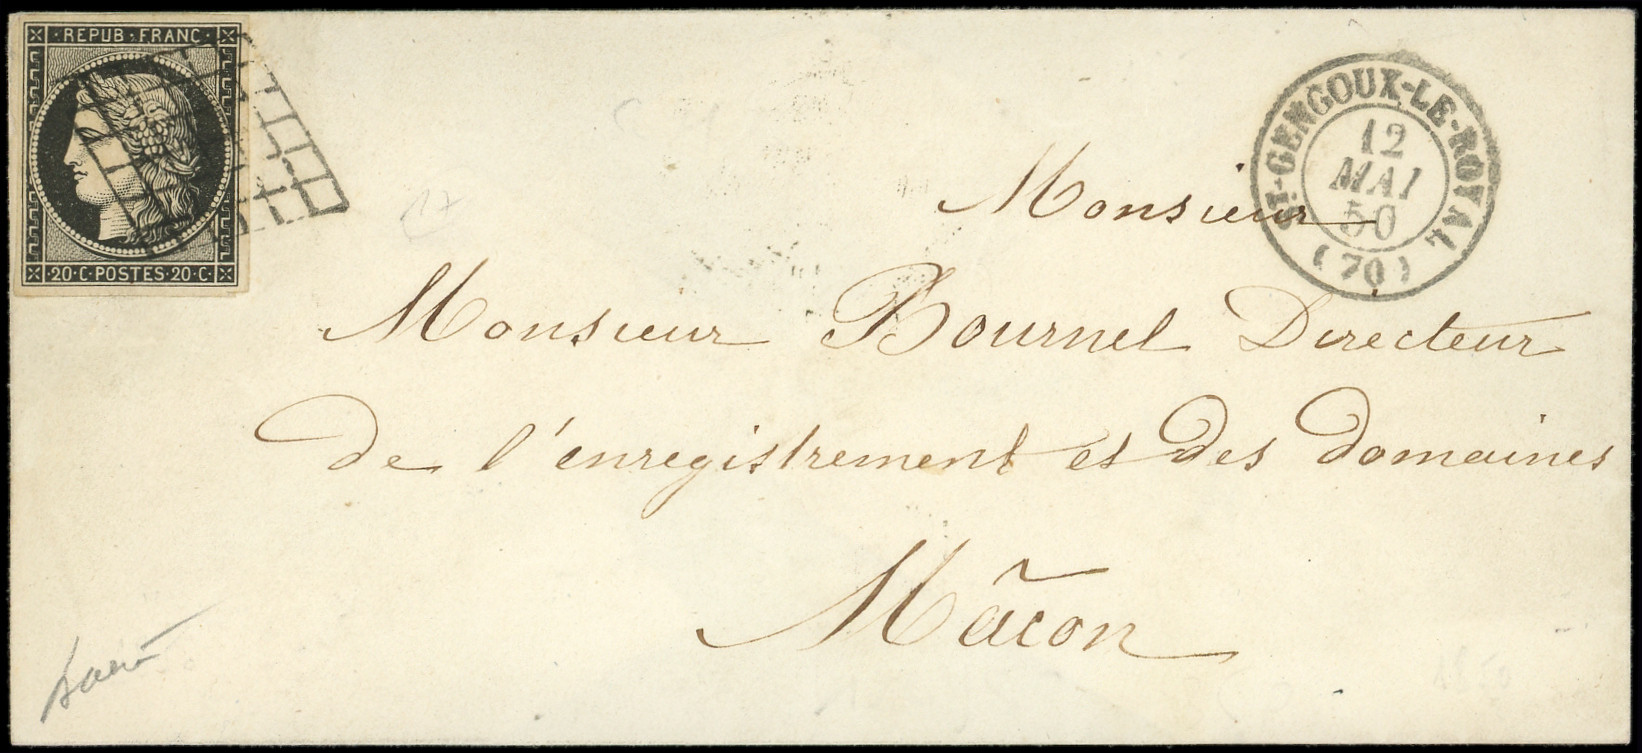 REPUB·FRANC·
20·C·POSTES·20·C·
ST-GENGOUX-LE-ROYAL
12
MAI
50
(70)
Monsieur
Monsieur Bournel Directeur
de l'enregistrement et des domaines
Mâcon
17
1850